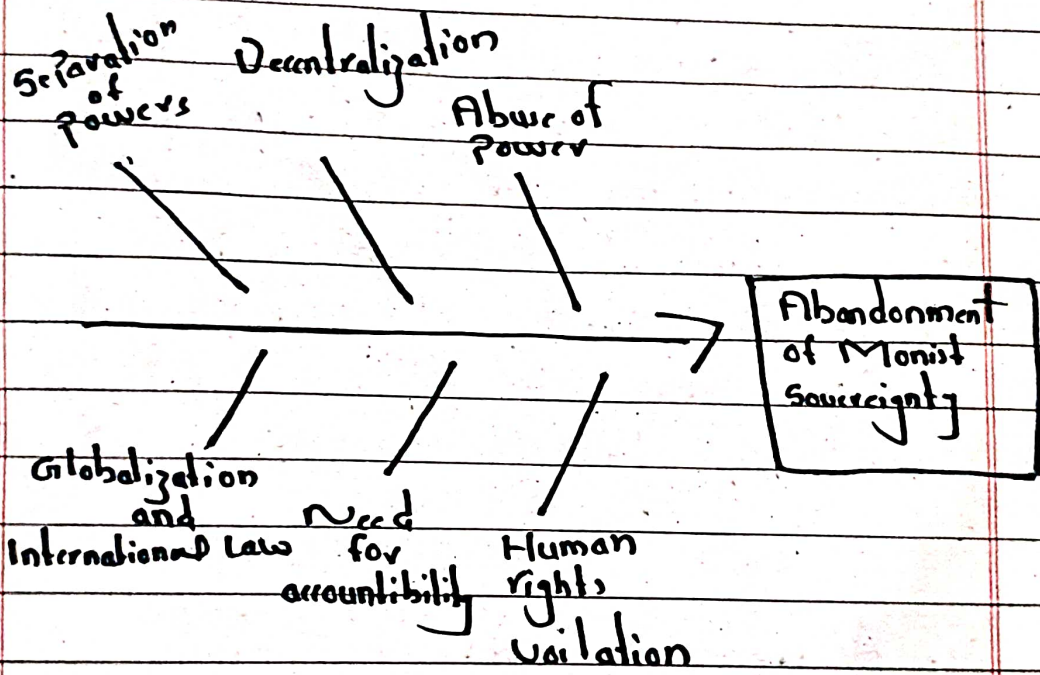 Separation
of
Powers
Decentralization
Abuse of
Power
Abandonment
of Monist
Sovereignty
Globalization
and
International Law
Need
for
accountibility
Human
rights
voilation